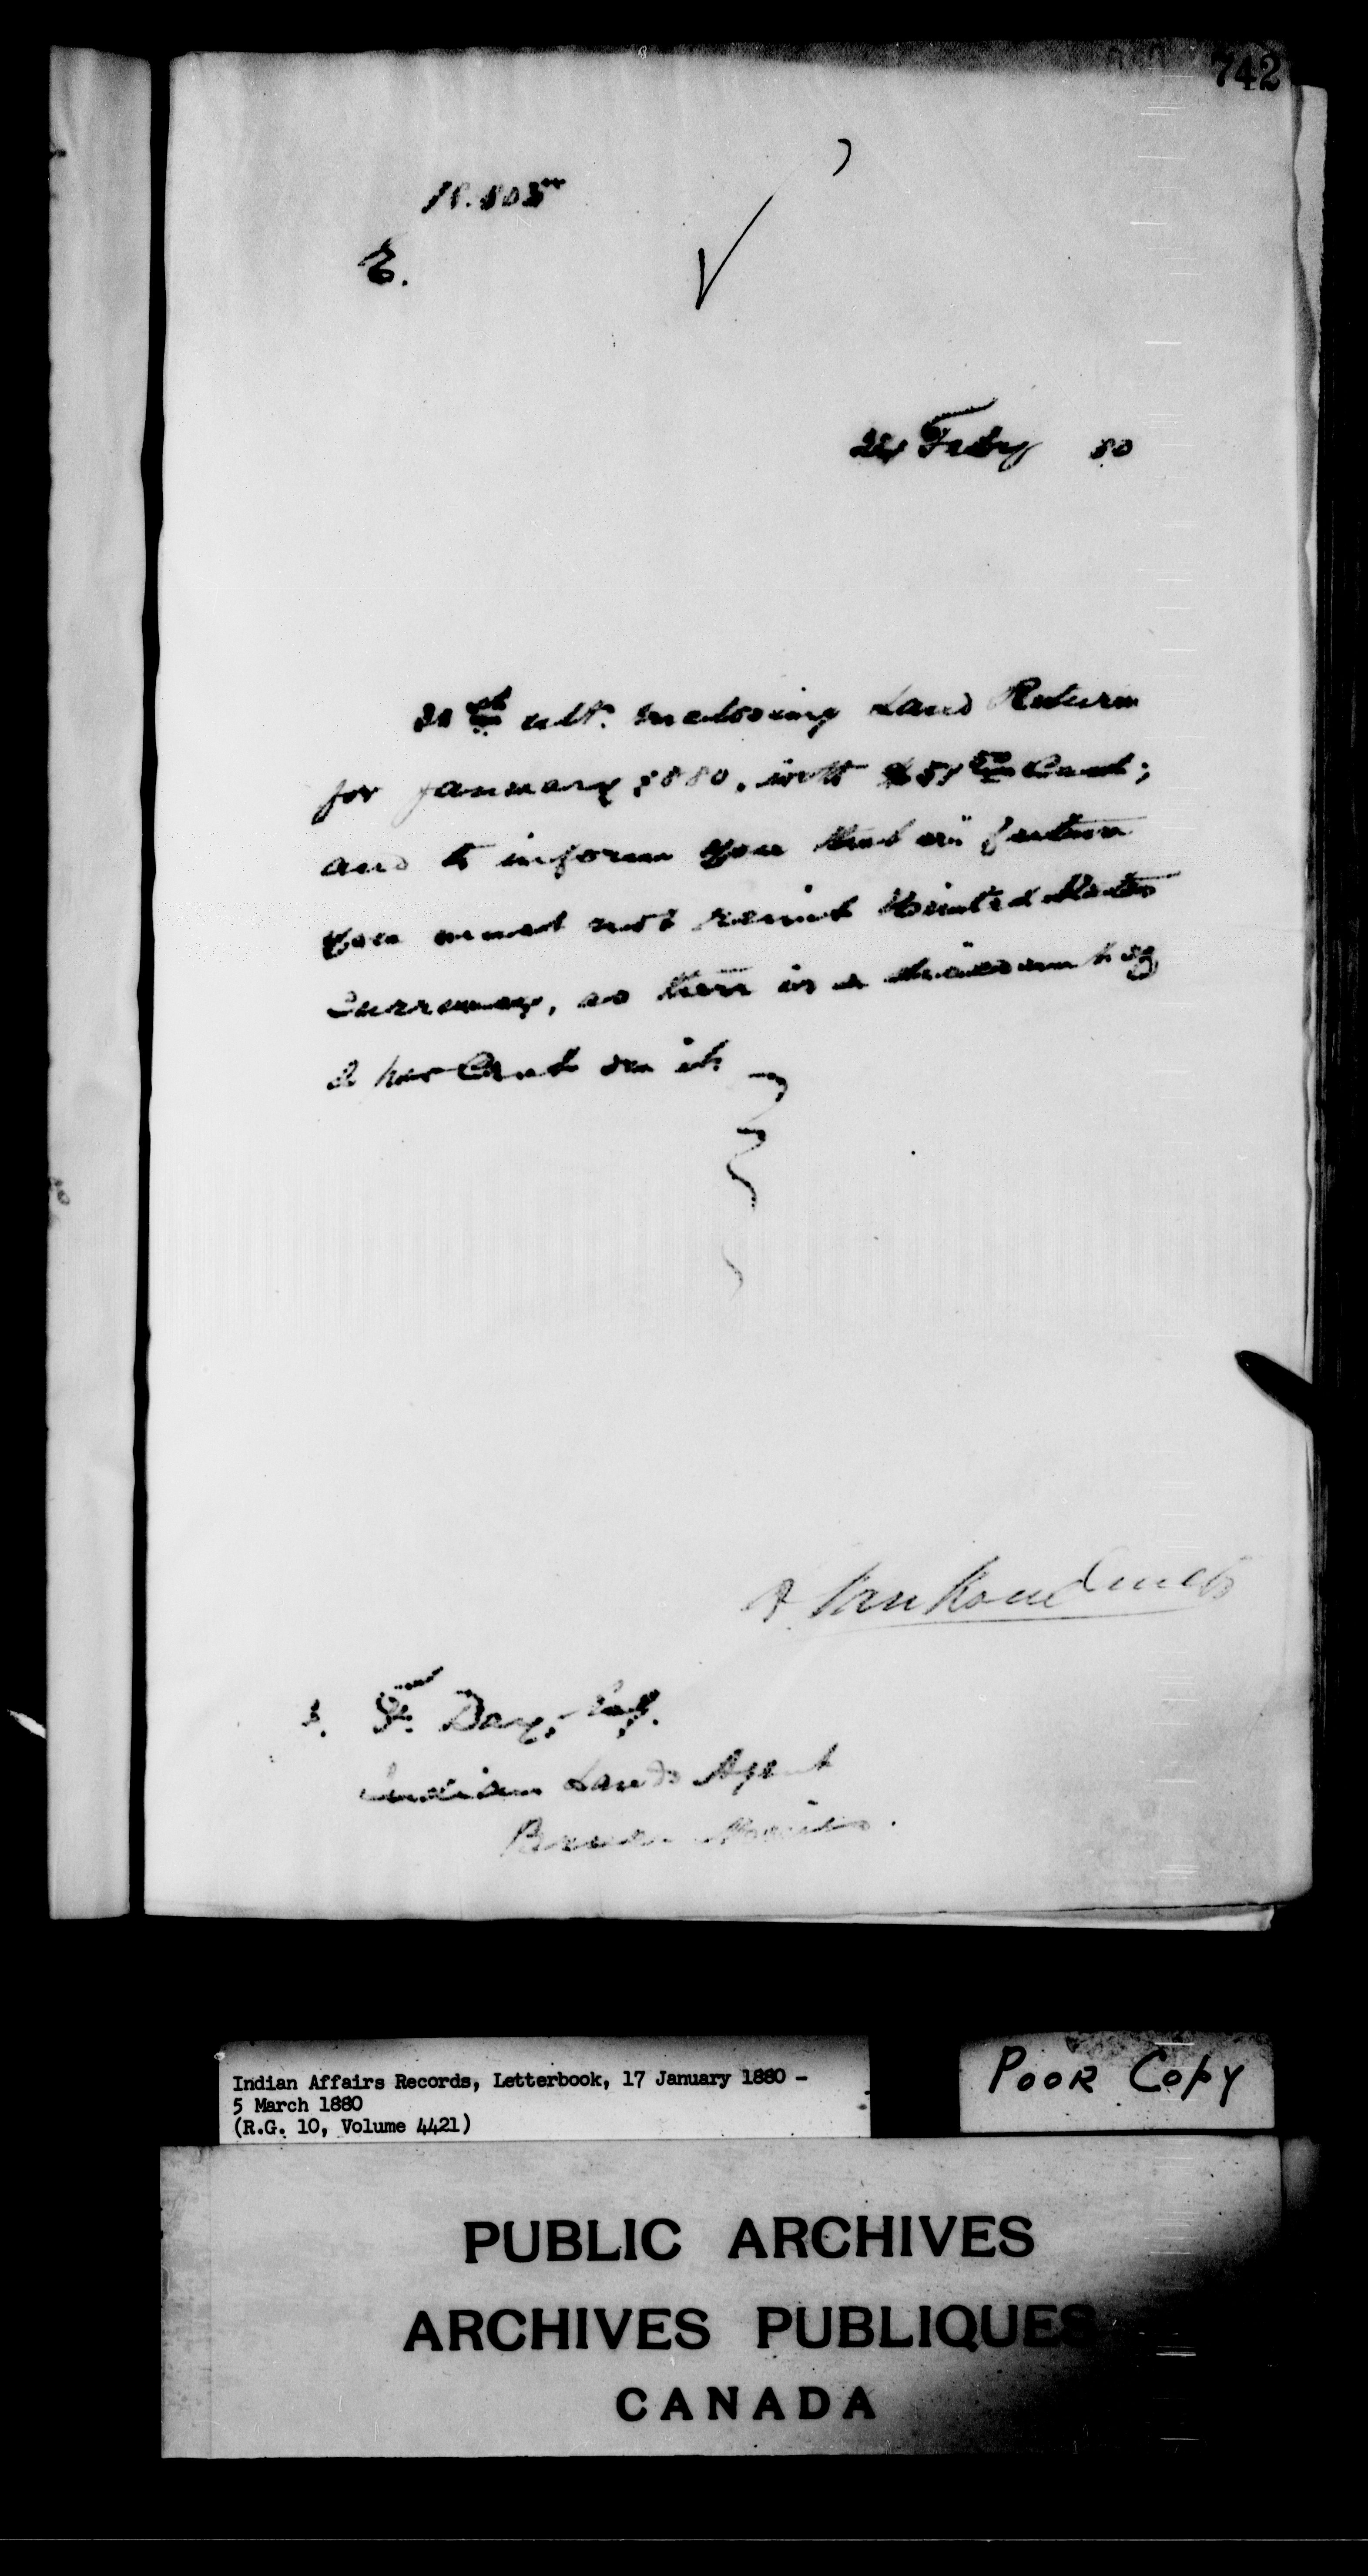 742
18.805
E.
24 Feby 80
31st ult. inclosing Land Return
for January 1880, with $51 50/100 Cash;
and to inform you that in future
you must not remit United States
Currency, as there is a discount of
2 per Cent on it.
A. VanKoughnet
F. Day, Esq.
Indian Lands Agent
Indian Affairs Records, Letterbook, 17 January 1880 -
5 March 1880
(R.G. 10, Volume 4421)
POOR COPY
PUBLIC ARCHIVES
ARCHIVES PUBLIQUES
CANADA